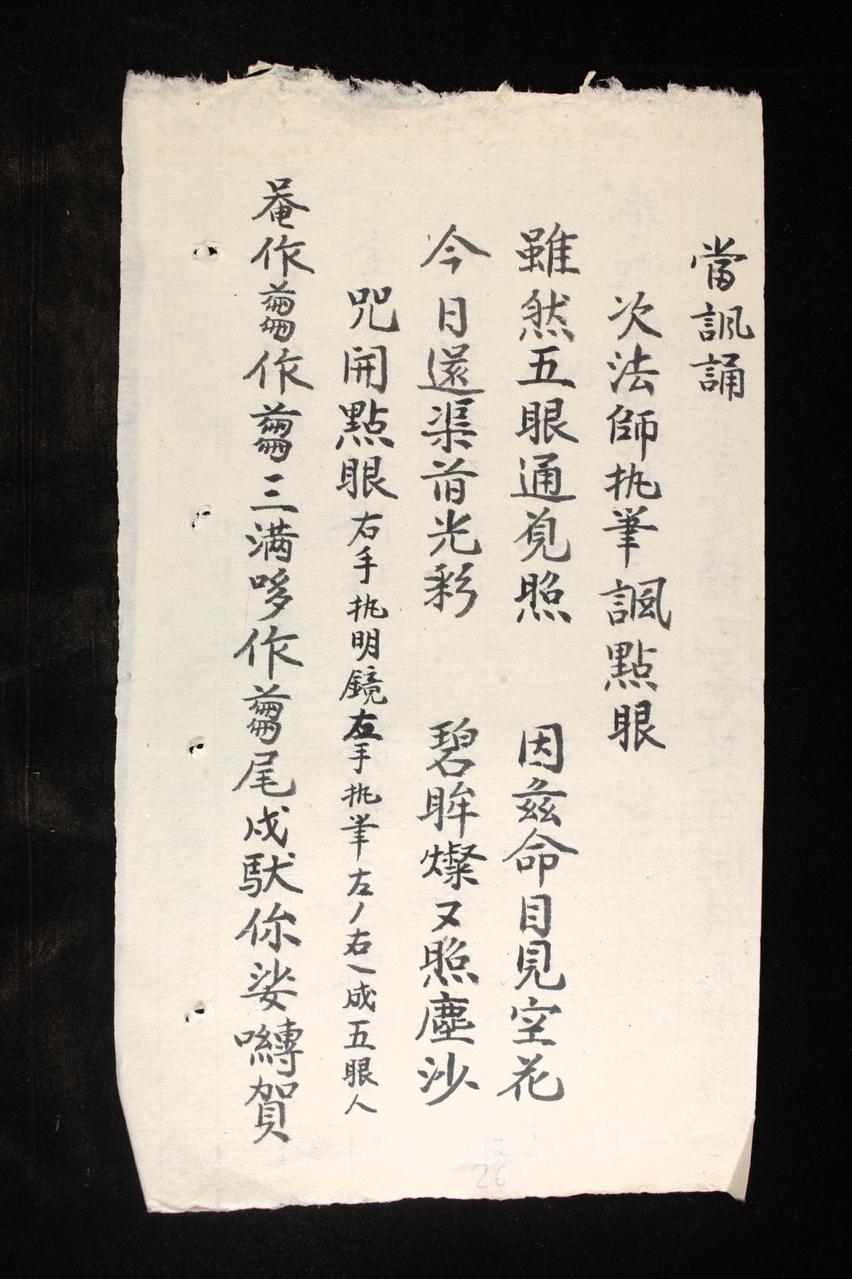 當諷誦
次法師执筆諷點眼
雖然五眼通覓照 因兹命目見空花
今日還渠昔光彩 碧眸燦又照塵沙
咒開點眼右手执明鏡左手执筆左丿右乀成五眼人
菴作蒭作蒭三满哆作蒭尾戍馱你娑嚩賀
26